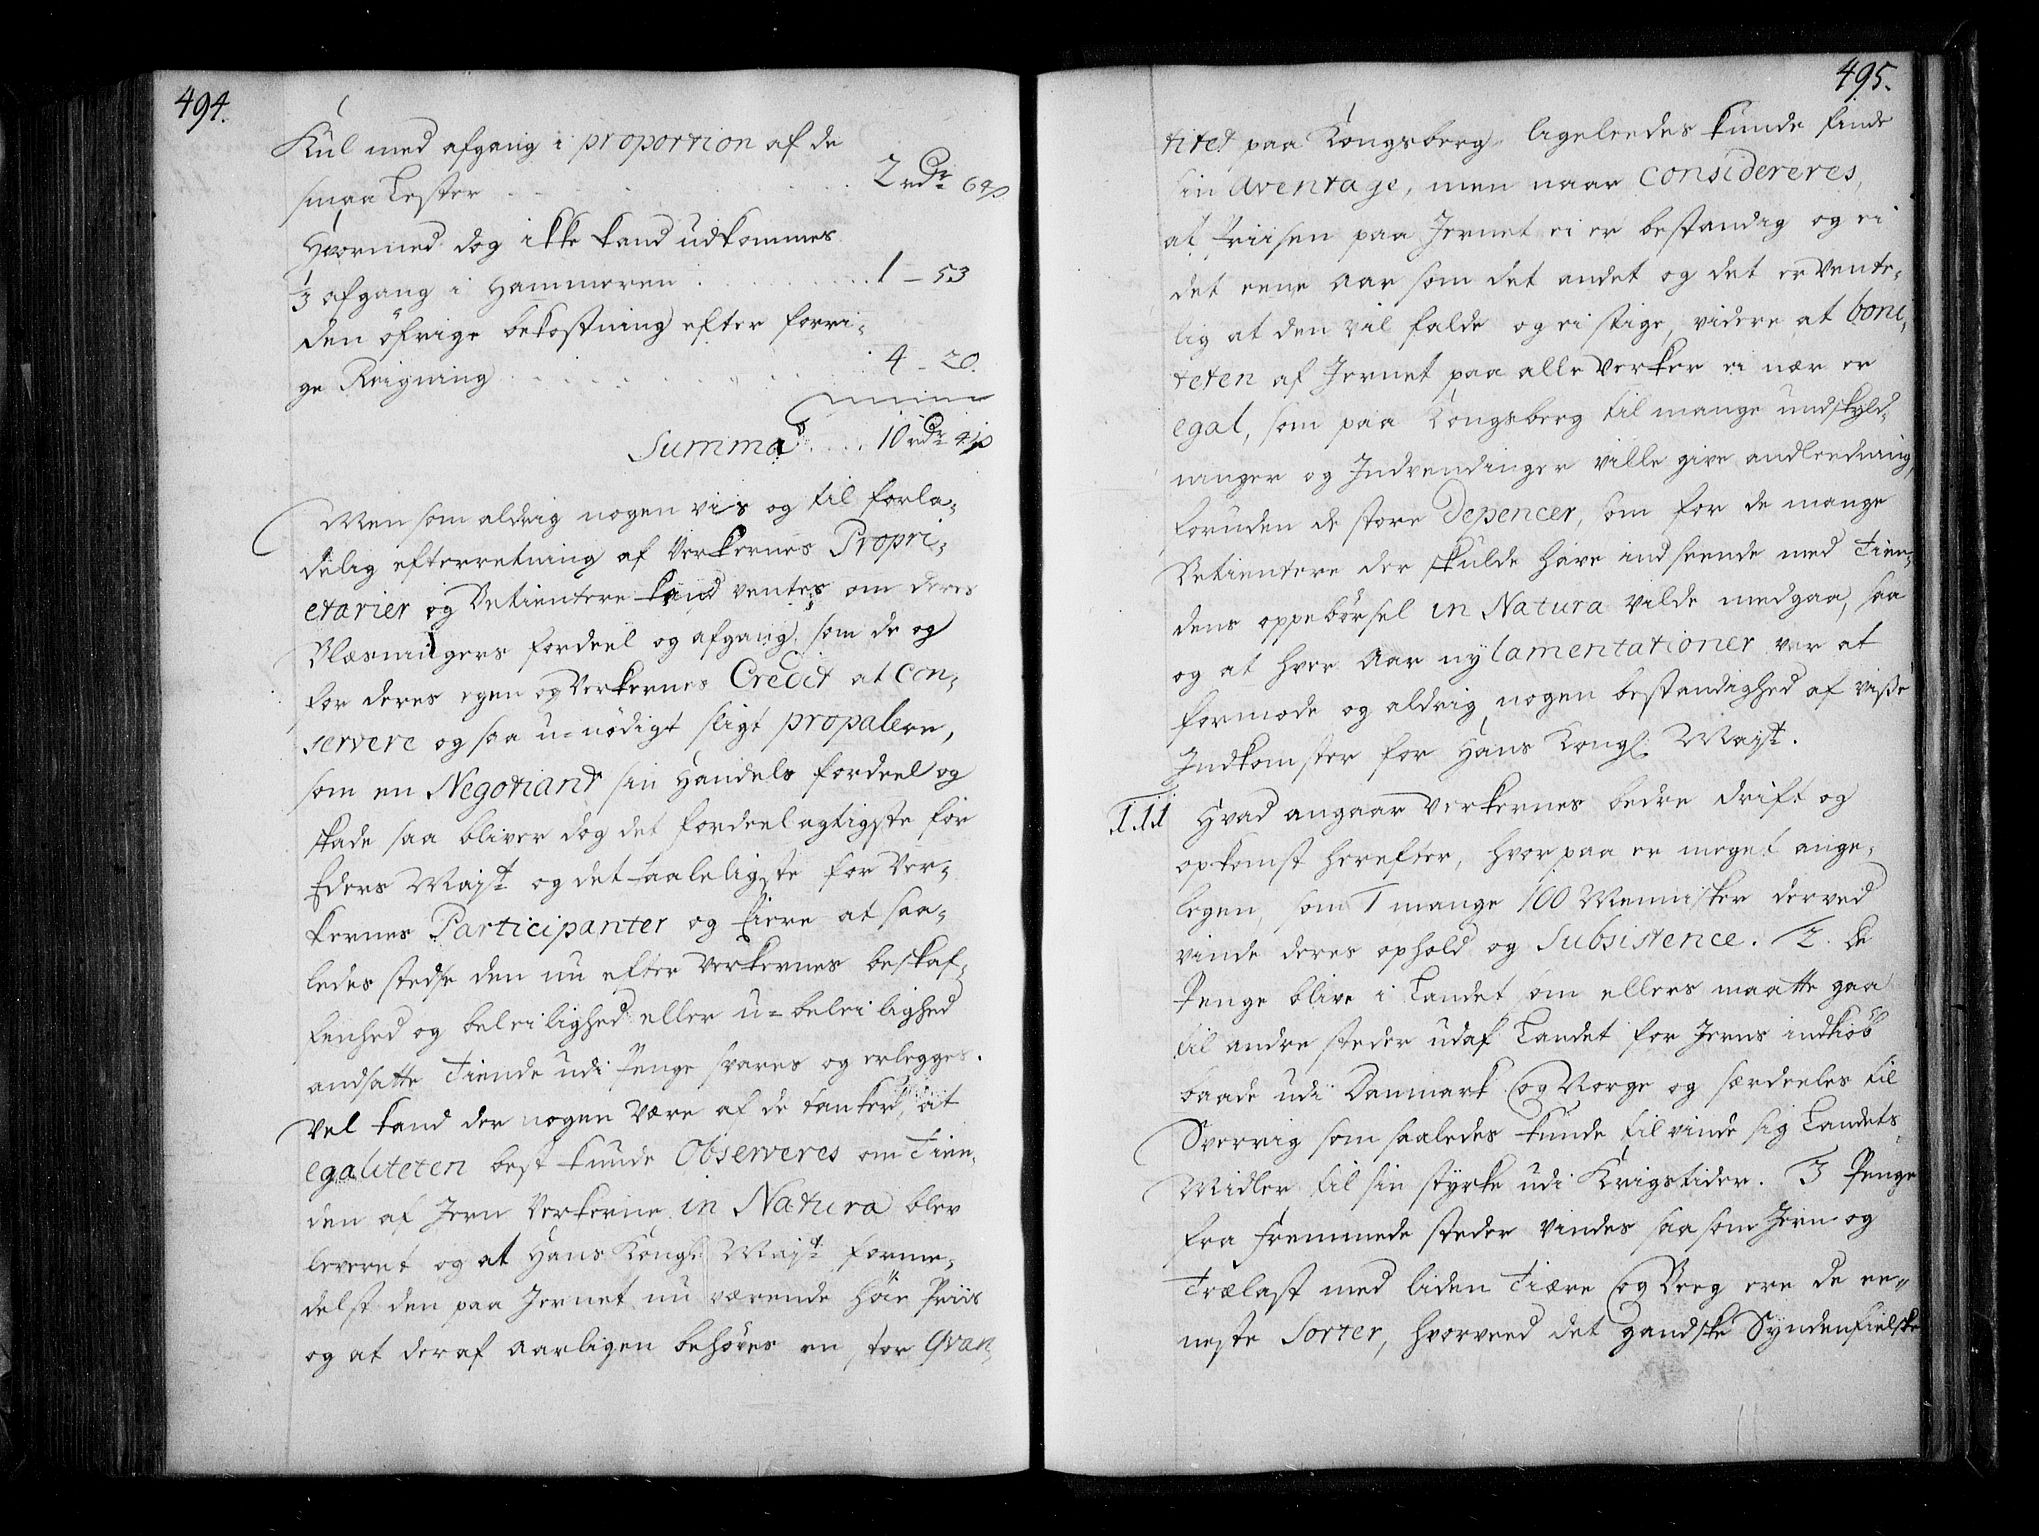 494.
Kul med afgang i proportion af de
smaa Lester . . . . . . 2 rdr 64 s
Hvormed dog ikke kand udkommes
1/3 afgang i Hammeren . . . . . 1 – 53
den öfrige bekostning efter forri-
ge Reigning . . . . . . 4 – 20.
Summa . . . . 10 rdr 41 s
Men som aldrig nogen vis og til forla-
delig efterretning af Verkernes Propri-
etarier og Betientere kand ventes om deres
Blæsningers fordeel og afgang, som de og
for deres egen og Verkernes Credit at con-
servere og saa u-nödigt sligt propalere,
som en Negotiant sin Handels fordeel og
skade saa bliver dog det fordeelagtigste for
Eders Mayst og det taaleligste for Ver-
kernes Participanter og Eiere at saa-
ledes stedse den nu efter Verkernes beskaf-
fenhed og beleilighed eller u-beleilighed
andsatte Tiende udi Penge svares og erlegges.
Vel kand der nogen være af de tanker, at
egaliteten best kunde Observeres om Tien-
den af Jern Verkerne in Natura blev
leveret og at Hans Kongl: Mayst forme-
delst den paa Jernet nu værende höie Priis
og at deraf aarligen behöves en stor Qvan-
495.
titet paa Kongsberg ligeleedes kunde finde
sin Aventage, men naar considereres,
at Priisen paa Jernet ei er bestandig og ei
det eene Aar som det andet og det er Vente-
lig at den vil falde og ei stige, videre at boni-
teten af Jernet paa alle Verker ei nær er
egal, som paa Kongsberg til mange undskyld-
ninger og Indvendinger ville give andleedning,
foruden de store Depencer, som for de mange
Betientere der skulde have indseende med Tien-
dens oppebörsel in Natura vilde medgaa, saa
og at hver Aar ny lamentationer var at
formode og aldrig nogen bestandighed af visse
Indkomster for Hans Kongl: Mayst.
III Hvad angaar Verkernes bedre drift og
opkomst herefter, hvorpaa er meget ange-
legen, som 1 mange 100 Mennisker derved
vinde deres ophold og Subsistence. 2. de
Penge blive i Landet som ellers maatte gaa
til andre steder udaf Landet for Jerns indkiöb
baade udi Danmark og Norge og særdeeles til
Sverrig som saaledes kunde tilvinde sig Landets
Midler til sin styrke udi Krigstider. 3 Penge
fra fremmede steder vindes saasom Jern og
Trælast med liden Tiære og Beeg ere de ee-
neste Sorter, hvorved det gandske Syndenfielske